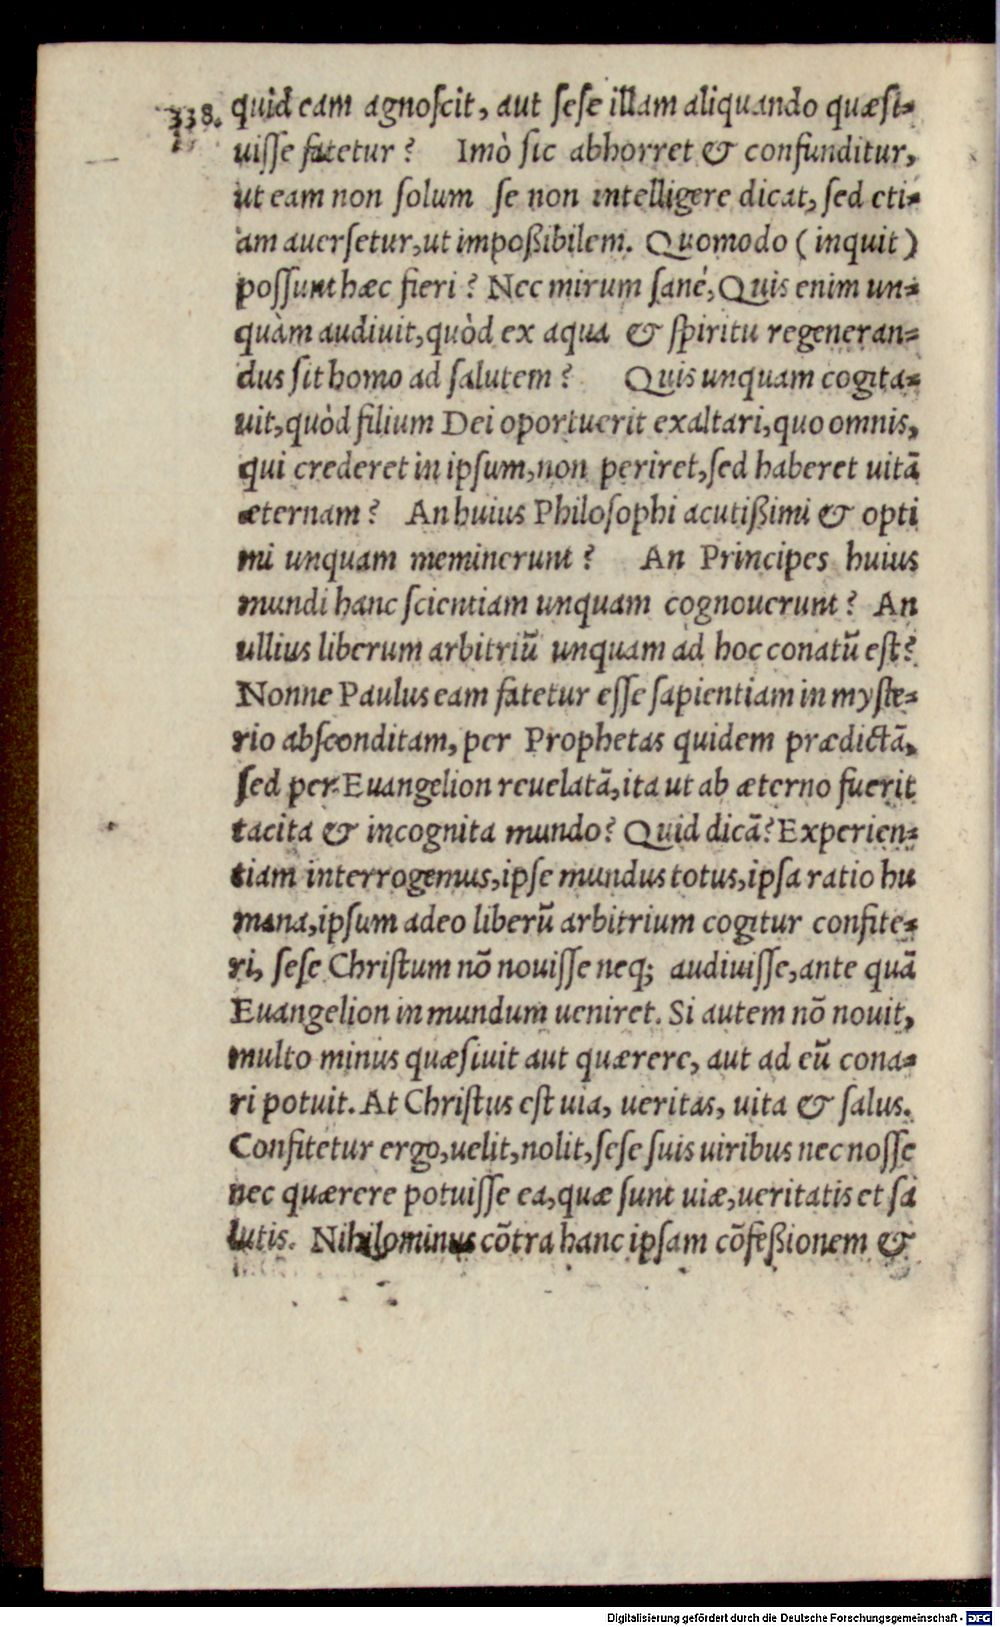 338.
quid eam agnoſcit, aut ſeſe illam aliquando quæſi-
uiſſe fatetur? Imò ſic abhorret & confunditur,
ut eam non ſolum ſe non intelligere dicat, ſed eti-
am auerſetur, ut impoßibilem. Quomodo (inquit)
poſſunt hæc fieri? Nec mirum ſané, Quis enim un-
quàm audiuit, quòd ex aqua & ſpiritu regeneran-
dus ſit homo ad ſalutem? Quis unquam cogita-
uit, quòd filium Dei oportuerit exaltari, quo omnis,
qui crederet in ipſum, non periret, ſed haberet uitā
æternam? An huius Philoſophi acutißimi & opti
mi unquam meminerunt? An Principes huius
mundi hanc ſcientiam unquam cognouerunt? An
ullius liberum arbitriū unquam ad hoc conatū eſt?
Nonne Paulus eam fatetur eſſe ſapientiam in myſte-
rio abſconditam, per Prophetas quidem prædictā,
ſed per Euangelion reuelatā, ita ut ab æterno fuerit
tacita & incognita mundo? Quid dicā? Experien-
tiam interrogemus, ipſe mundus totus, ipſa ratio hu
mana, ipſum adeo liberū arbitrium cogitur confite-
ri, ſeſe Chriſtum nō nouiſſe neq; audiuiſſe, ante quā
Euangelion in mundum ueniret. Si autem nō nouit,
multo minus quæſiuit aut quærere, aut ad eū cona-
ri potuit. At Chriſtus eſt uia, ueritas, uita & ſalus.
Confitetur ergo, uelit, nolit, ſeſe ſuis uiribus nec noſſe
nec quærere potuiſſe ea, quæ ſunt uiæ, ueritatis et ſa
lutis. Nihilominus cōtra hanc ipſam cōfeßionem &
Digitalisierung gefördert durch die Deutsche Forschungsgemeinschaft - DFG